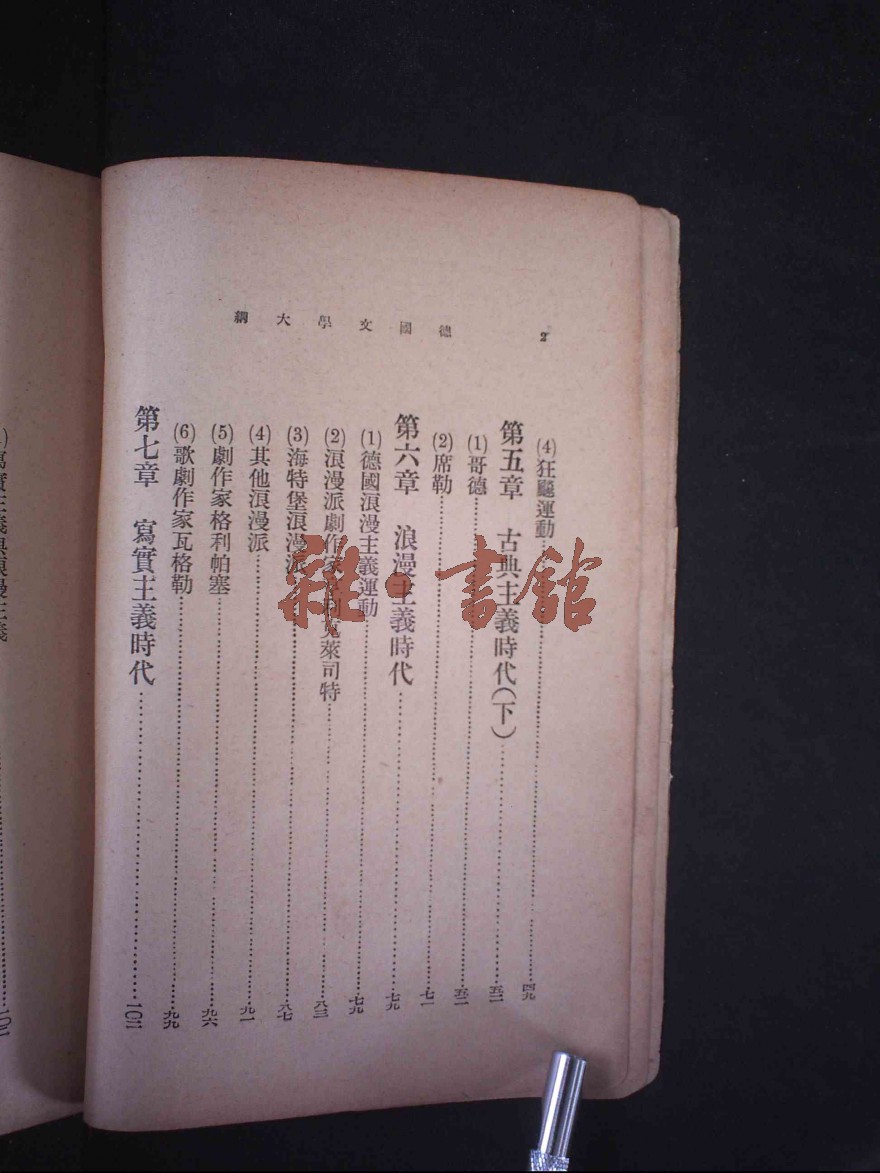 德國文學大綱
2
(4)狂飈運動……四九
第五章 古典主義時代(下)……五二
(1)哥德……五二
(2)席勒……七一
第六章 浪漫主義時代……七九
(1)德國浪漫主義運動……七九
(2)浪漫派劇作家 克萊司特……八三
(3)海特堡浪漫派……八七
(4)其他浪漫派……九一
(5)劇作家格利帕塞……九六
(6)歌劇作家瓦格勒……九九
第七章 寫實主義時代……一〇二
寫實主義與浪漫主義……一〇二
雜·書館